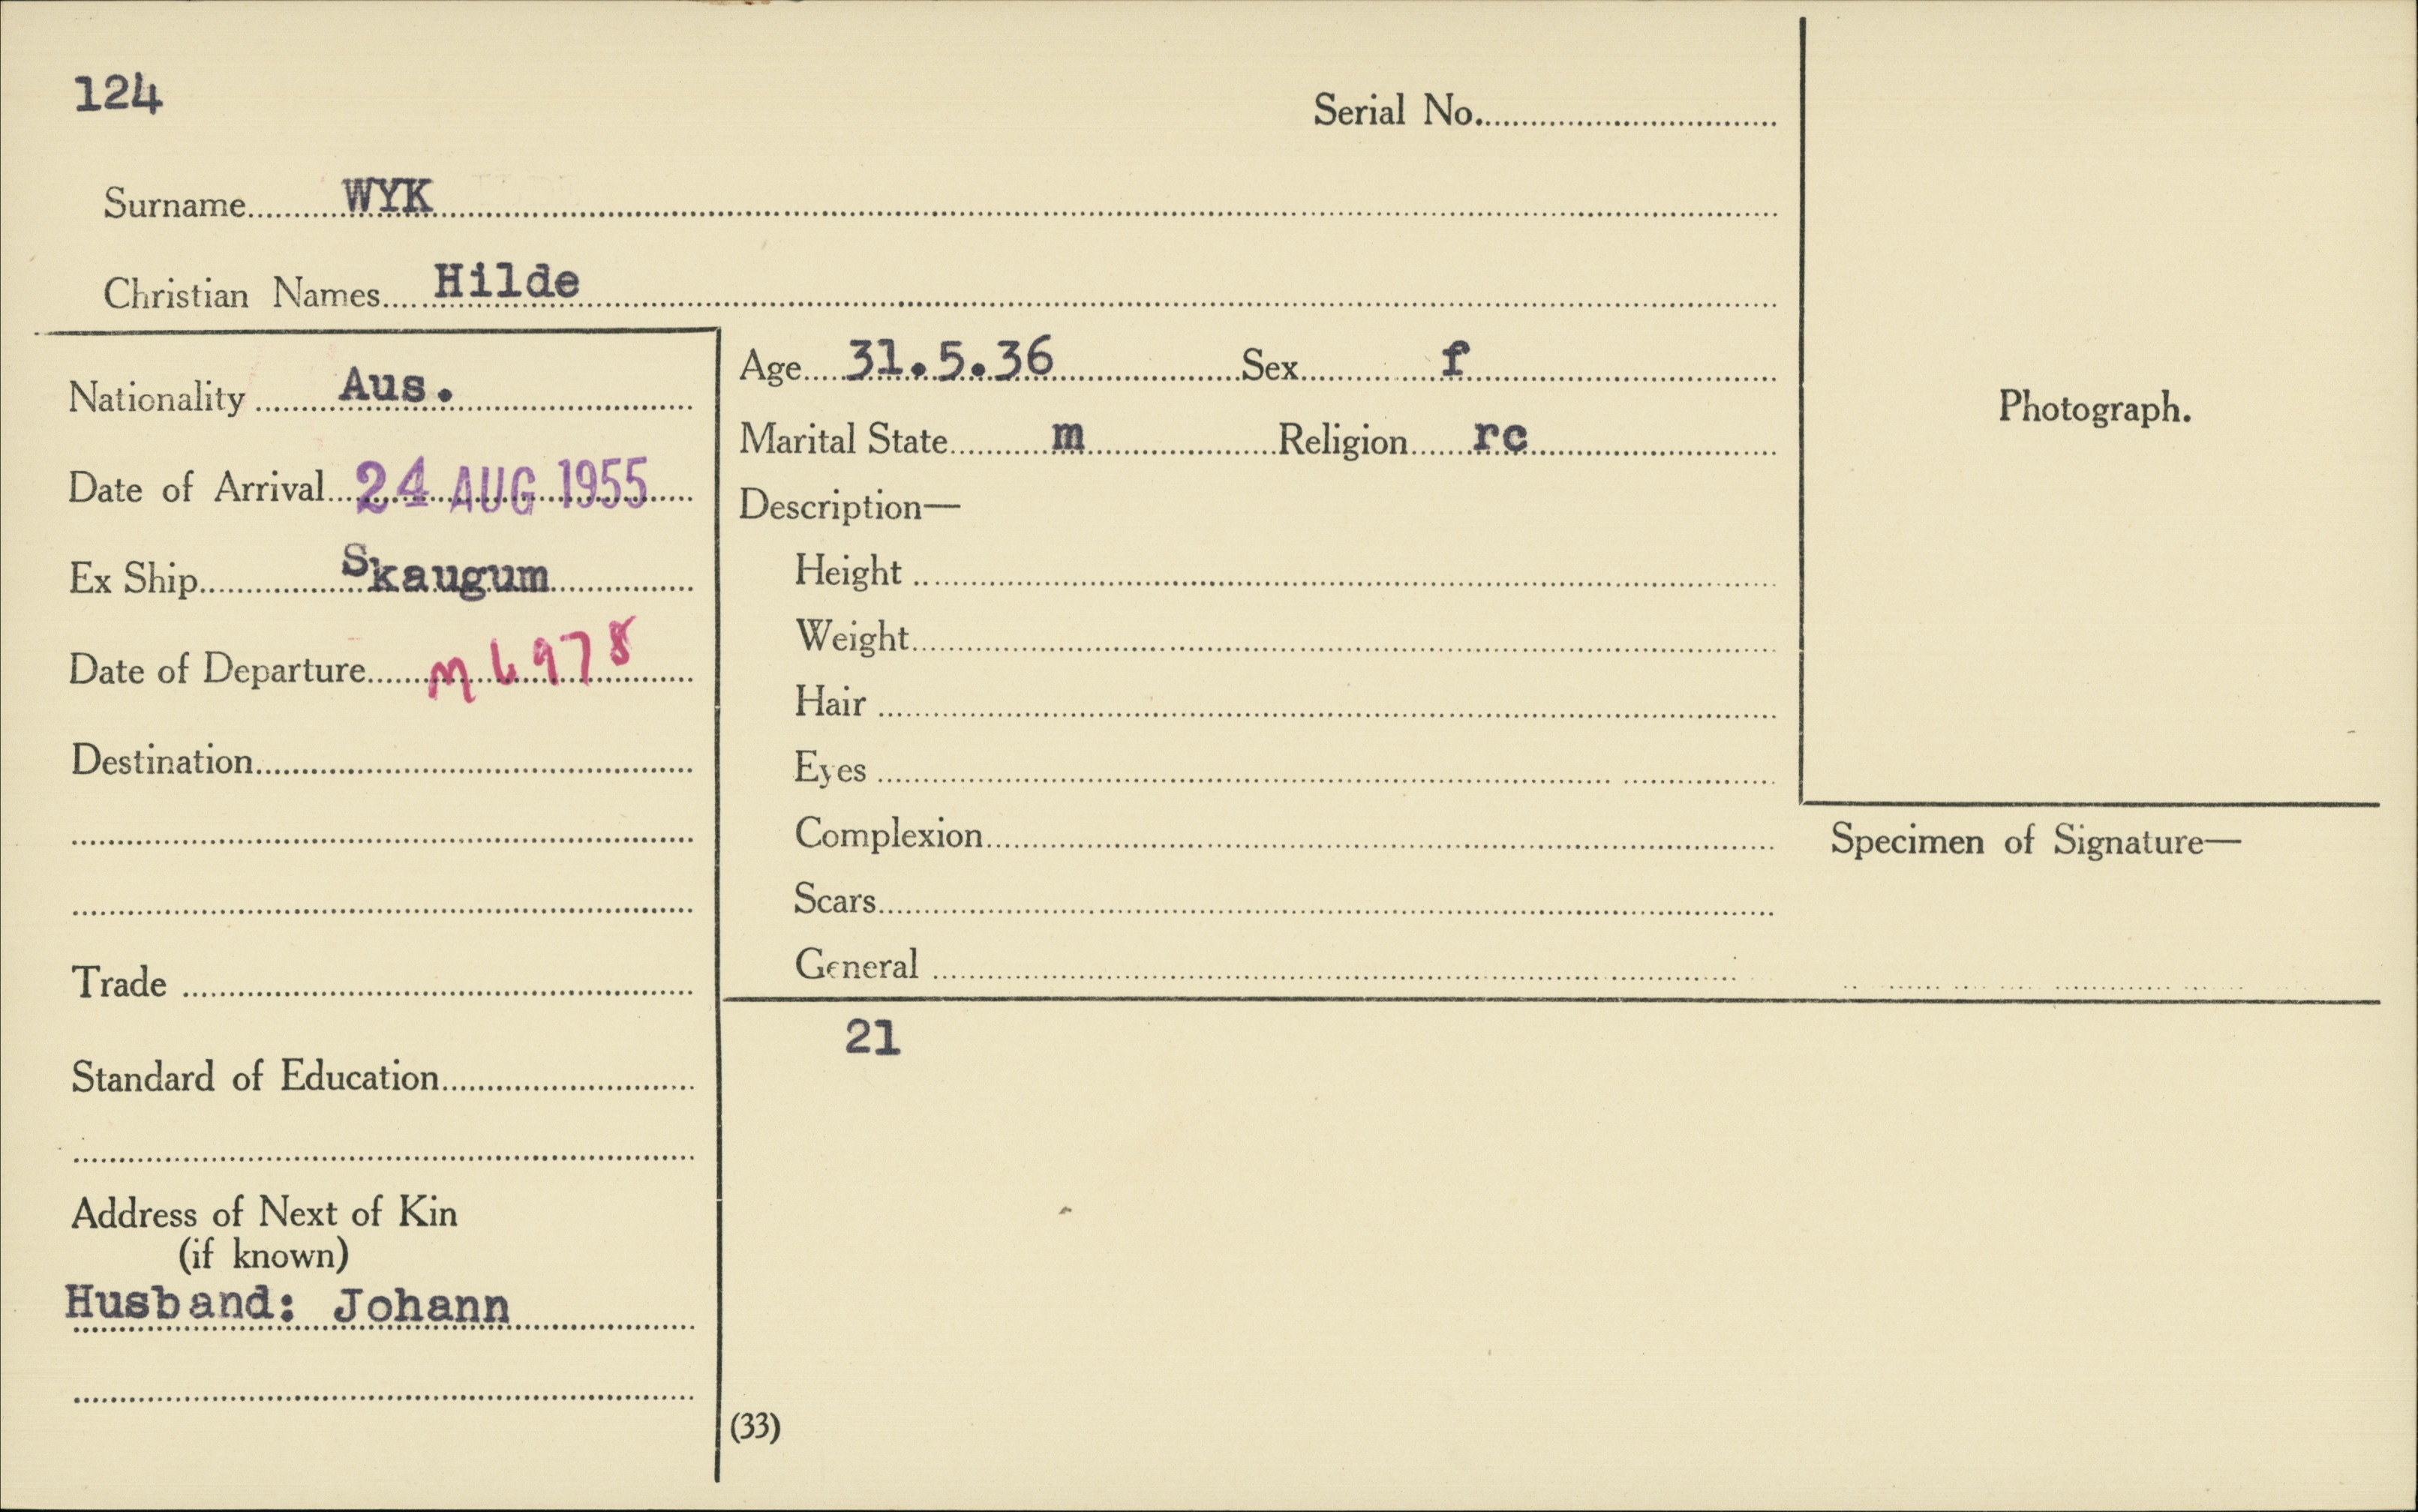 124
Serial No.
Surname WYK
Christian Names Hilde
Nationality Aus.
Date of Arrival 24 AUG 1955
Ex Ship Skaugum
Date of Departure M6978
Destination
Trade
Standard of Education
Address of Next of Kin
(if known)
Husband: Johann
Age 31.5.36 Sex f
Marital State m Religion rc
Description—
Height
Weight
Hair
Eyes
Complexion
Scars
General
21
(33)
Photograph.
Specimen of Signature—